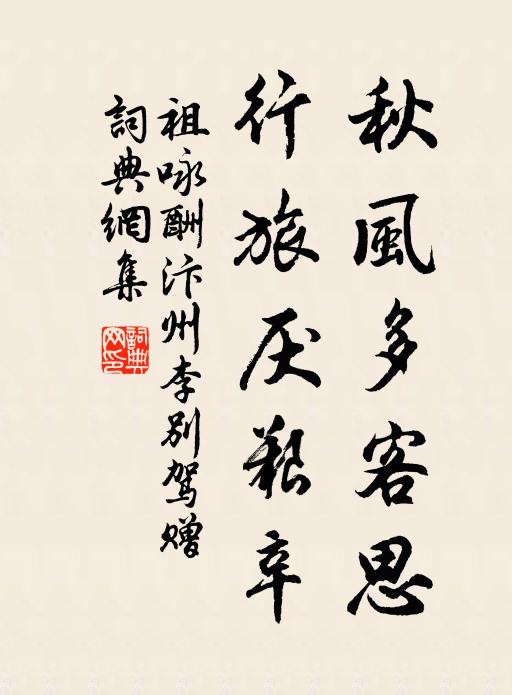 秋風多客思
行旅厌艱辛
祖咏酬汴州李别駕贈
詞典網集
詞典網印